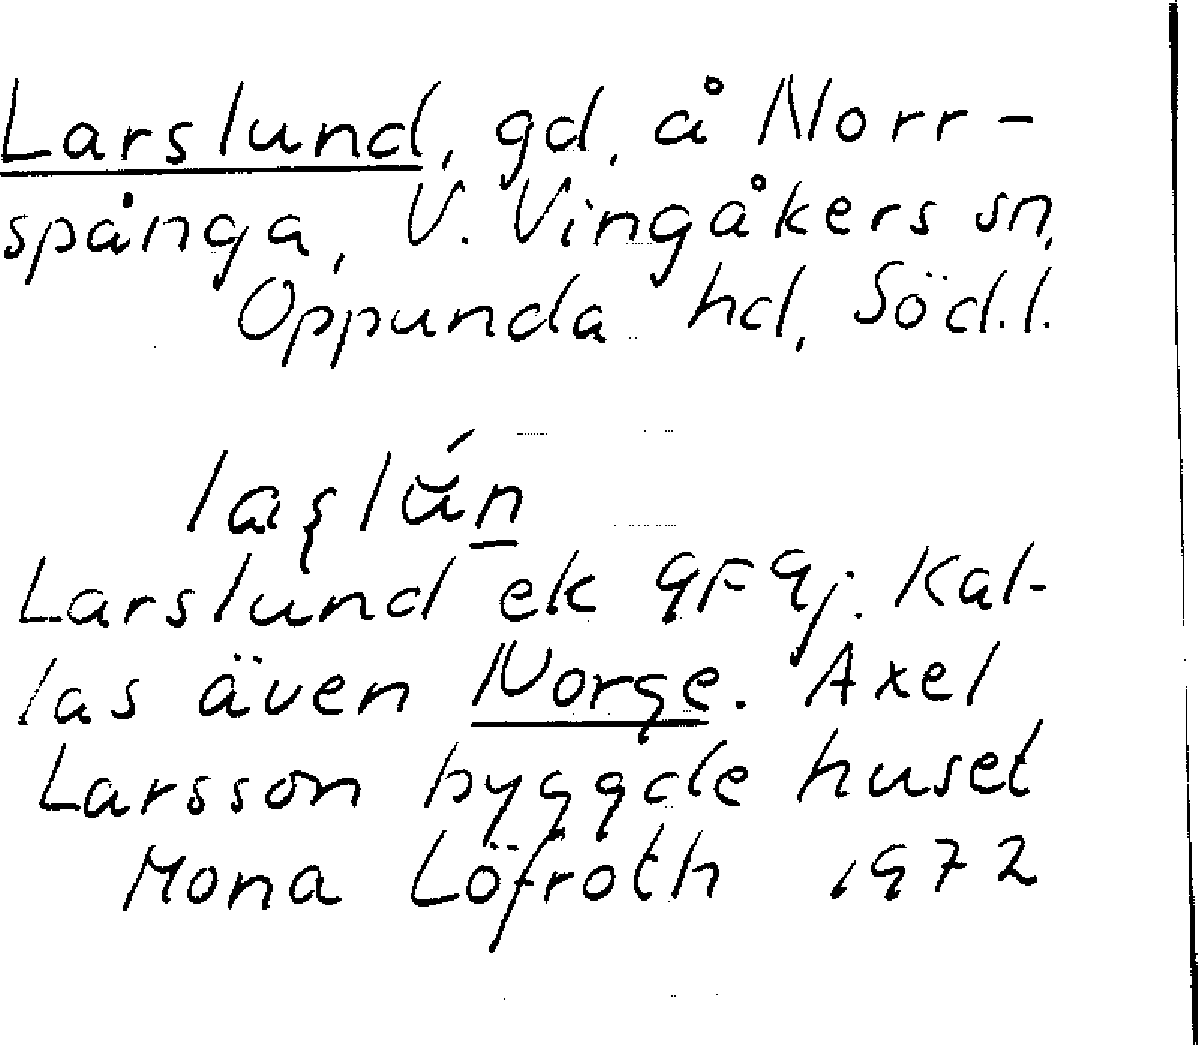 Larslund, gd, å Norr-
spånga, V. Vingåkers sn,
Oppunda hd, Söd.l.
laʂlŭ́n
Larslund ek 9F9j. Kal-
las även Norge. Axel
Larsson byggde huset
Mona Löfroth 1972